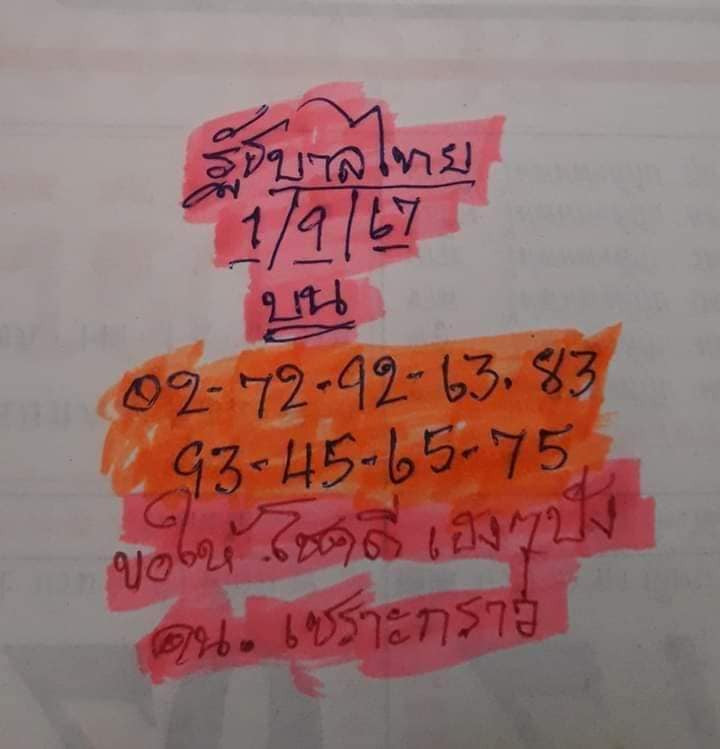 รัฐบาลไทย
1/9/67
บน
02-72-92-63.83
93-45-65-75
ขอให้.โชคดี เฮงๆปัง
คน. เซราะกราว